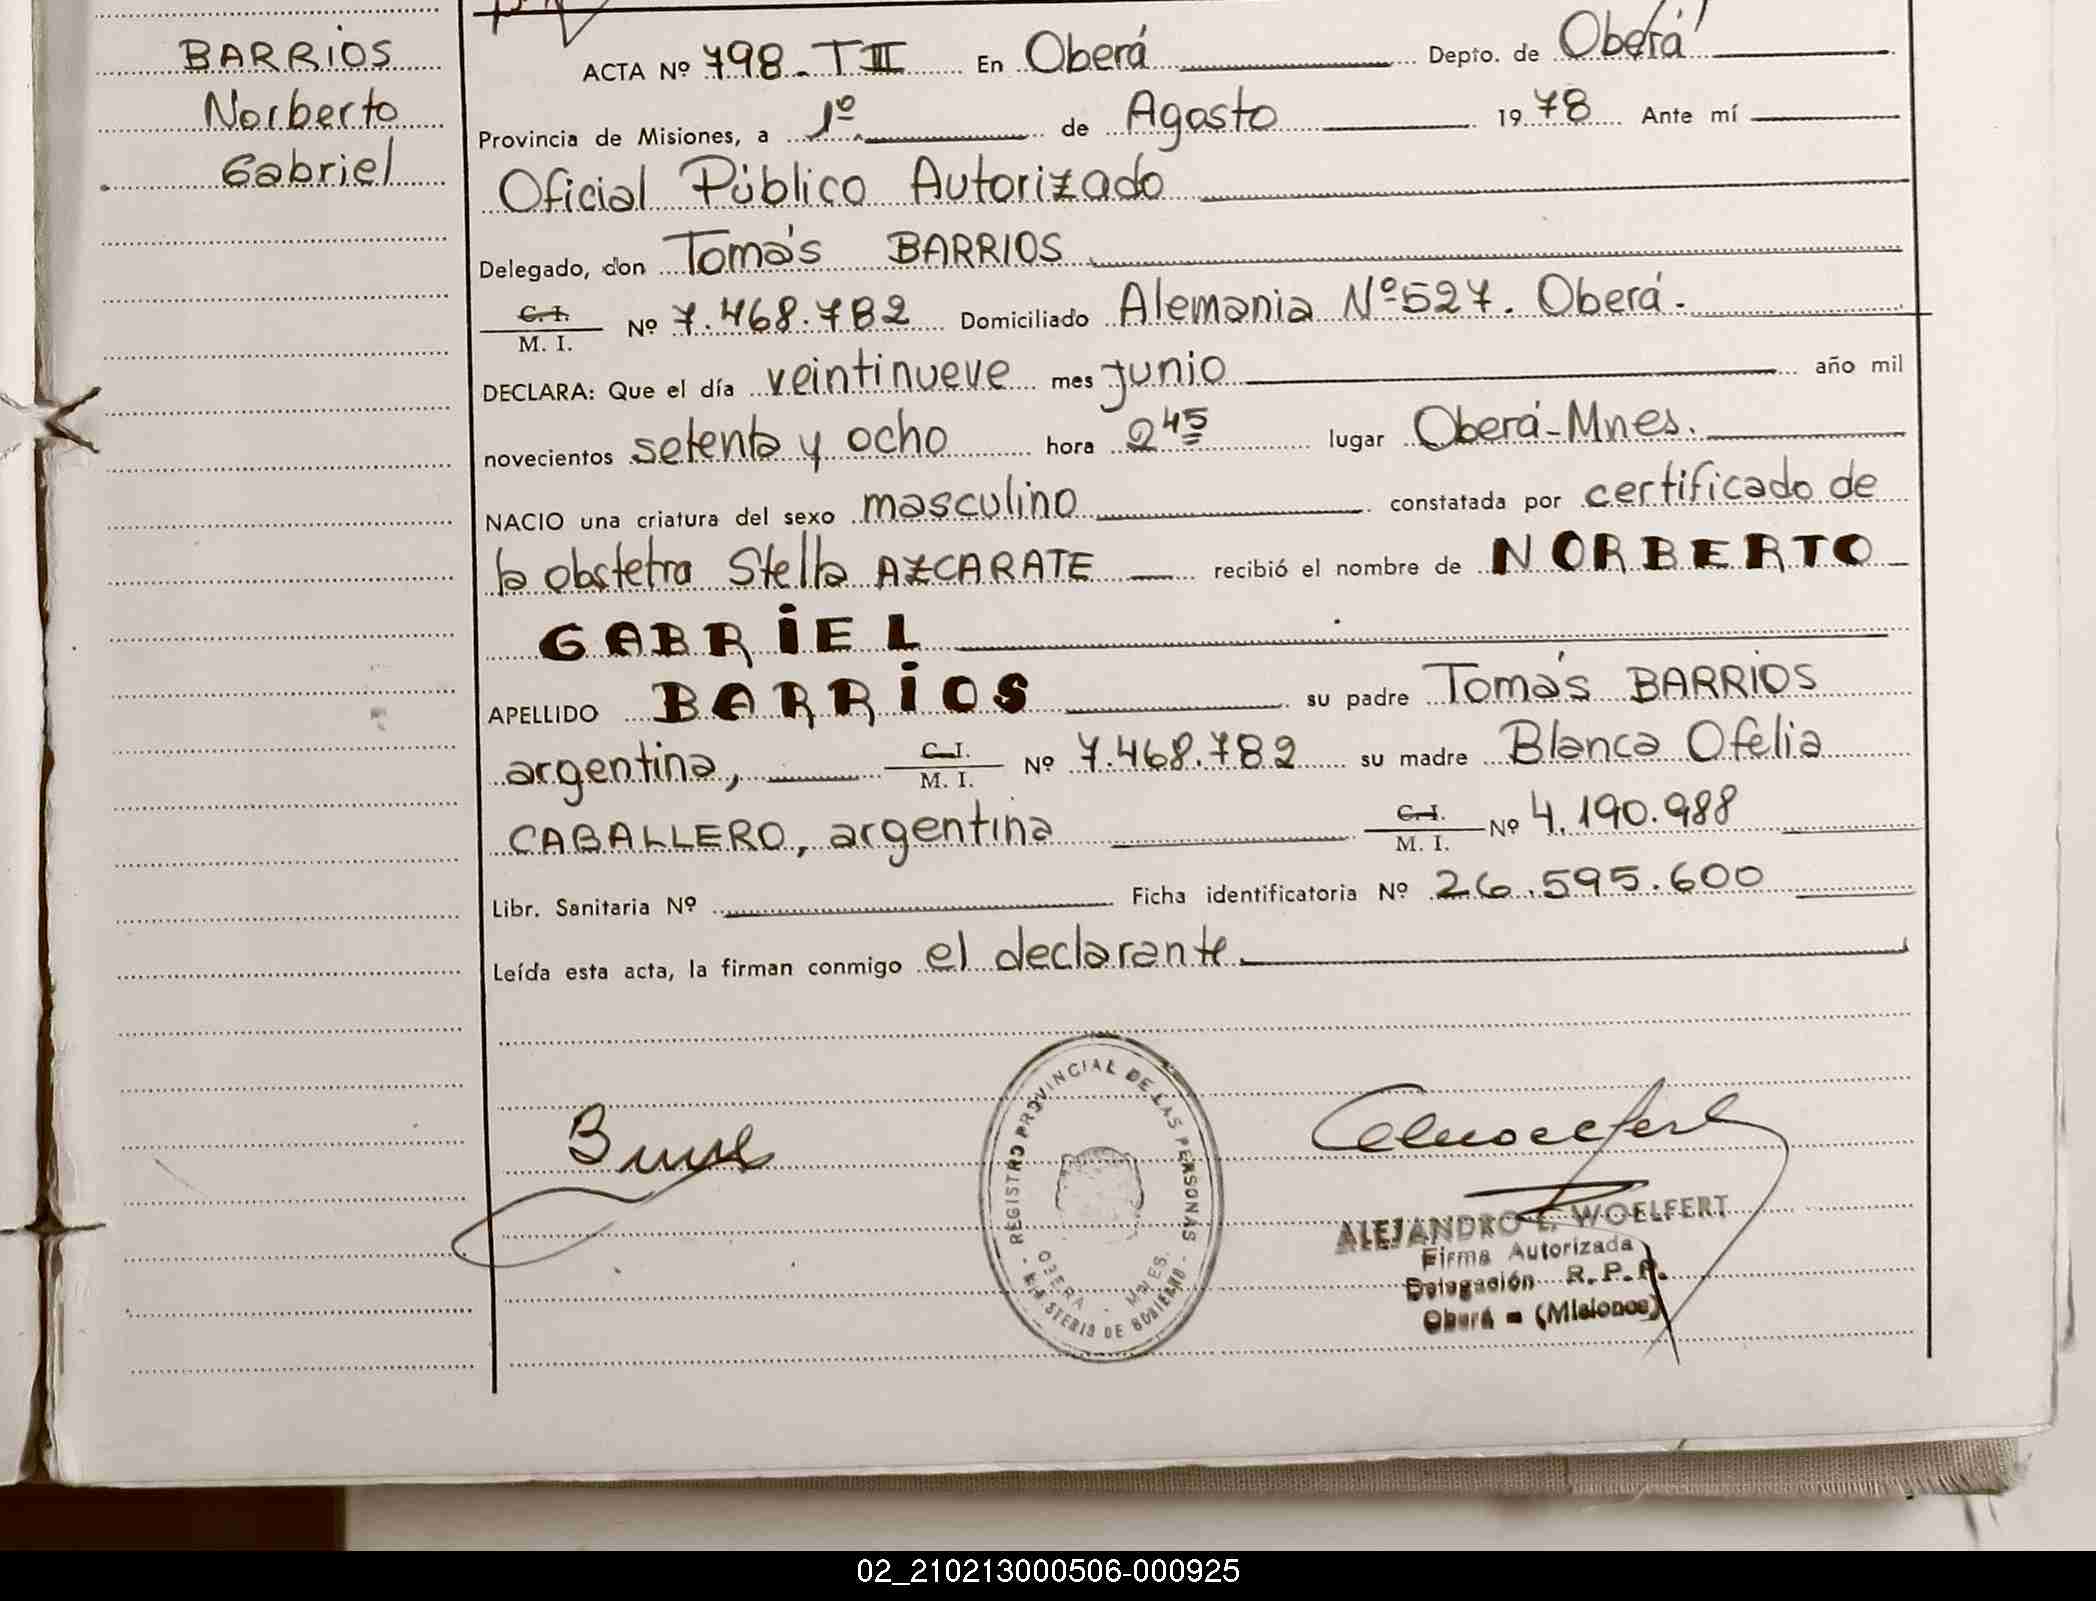 BARRIOS
Norberto
Gabriel
ACTA Nº 798-T III En Oberá Depto. de Oberá
Provincia de Misiones, a 1º de Agosto 1978 Ante mí
Oficial Público Autorizado
Delegado, don Tomás BARRIOS
C. I.
M. I. Nº 7.468.782 Domiciliado Alemania Nº 527. Oberá.-
DECLARA: Que el día veintinueve mes junio año mil
novecientos setenta y ocho hora 2 45 lugar Oberá-Mnes.
NACIO una criatura del sexo masculino constatada por certificado de
la obstetra Stella AZCARATE recibió el nombre de NORBERTO
GABRIEL
APELLIDO BARRIOS su padre Tomás BARRIOS
argentina, C. I. M. I. Nº 7.468.782 su madre Blanca Ofelia
CABALLERO, argentina C. I. M. I. Nº 4.190.988
Libr. Sanitaria Nº Ficha identificatoria Nº 26.595.600
Leída esta acta, la firman conmigo el declarante
REGISTRO PROVINCIAL DE LAS PERSONAS
OBERA - MNES.
MINISTERIO DE GOBIERNO
ALEJANDRO E. WOELFERT
Firma Autorizada
Delegación R. P. P.
Oberá - (Misiones)
02_210213000506-000925